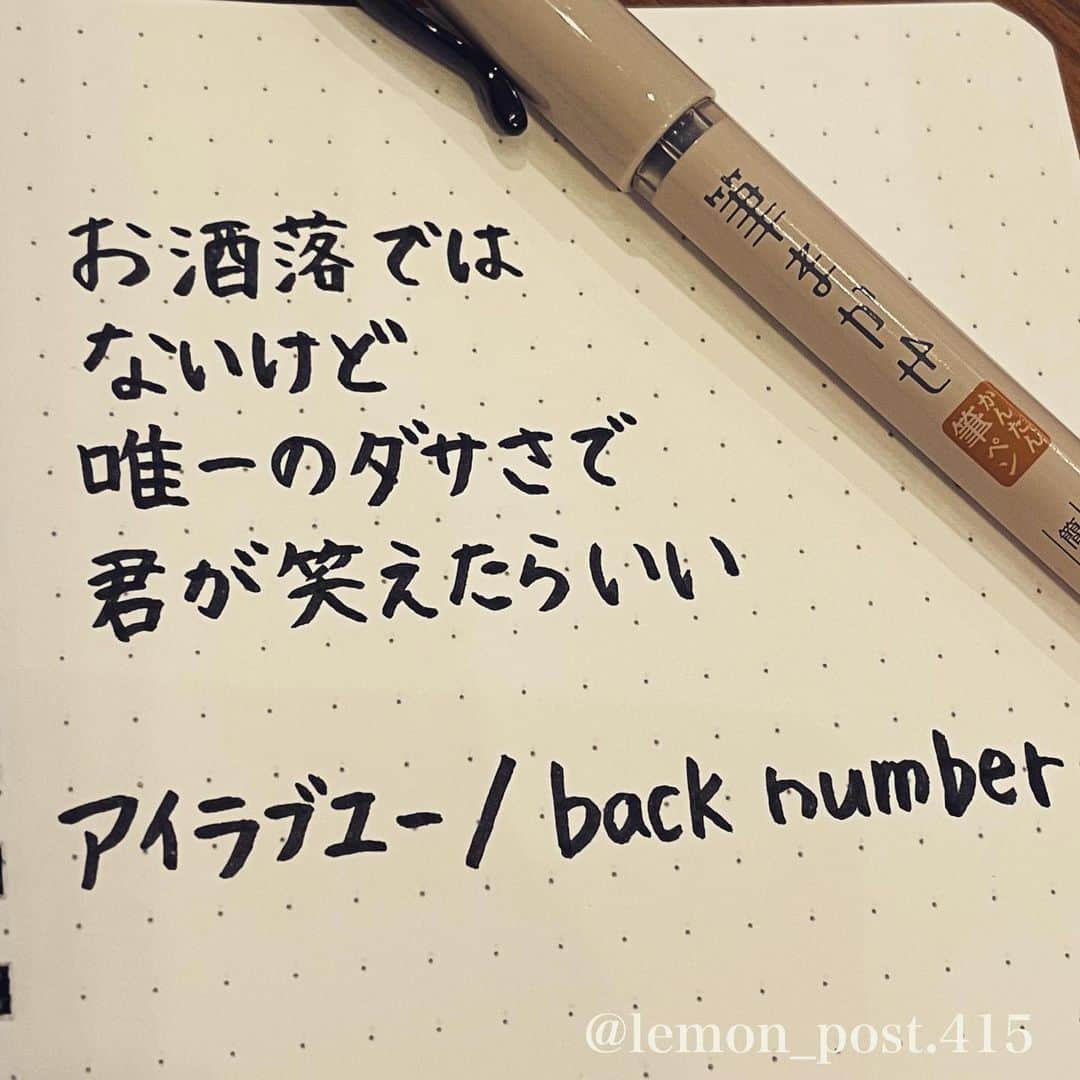 お洒落では
ないけど
唯一のダサさで
君が笑えたらいい
アイラブユー/back number
筆まかせ
かんたん
筆ペン
簡
@lemon_post.415